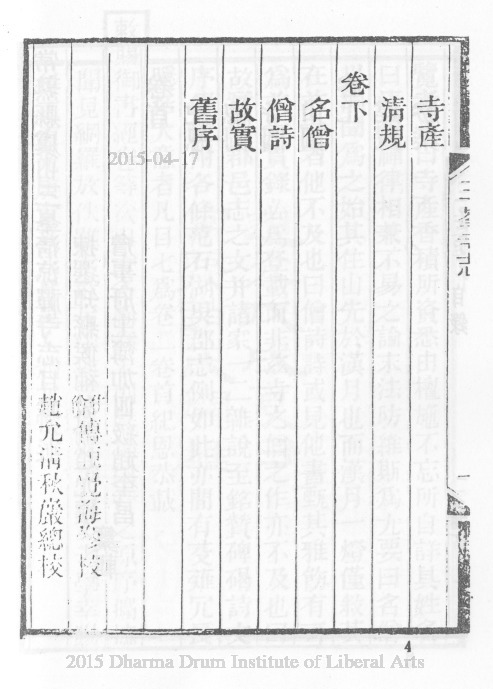 寺產
清規
卷下
名僧
僧詩
故實
舊序
覺海參校
趙允清秋巖總校
2015-04-17
4
2015 Dharma Drum Institute of Liberal Arts